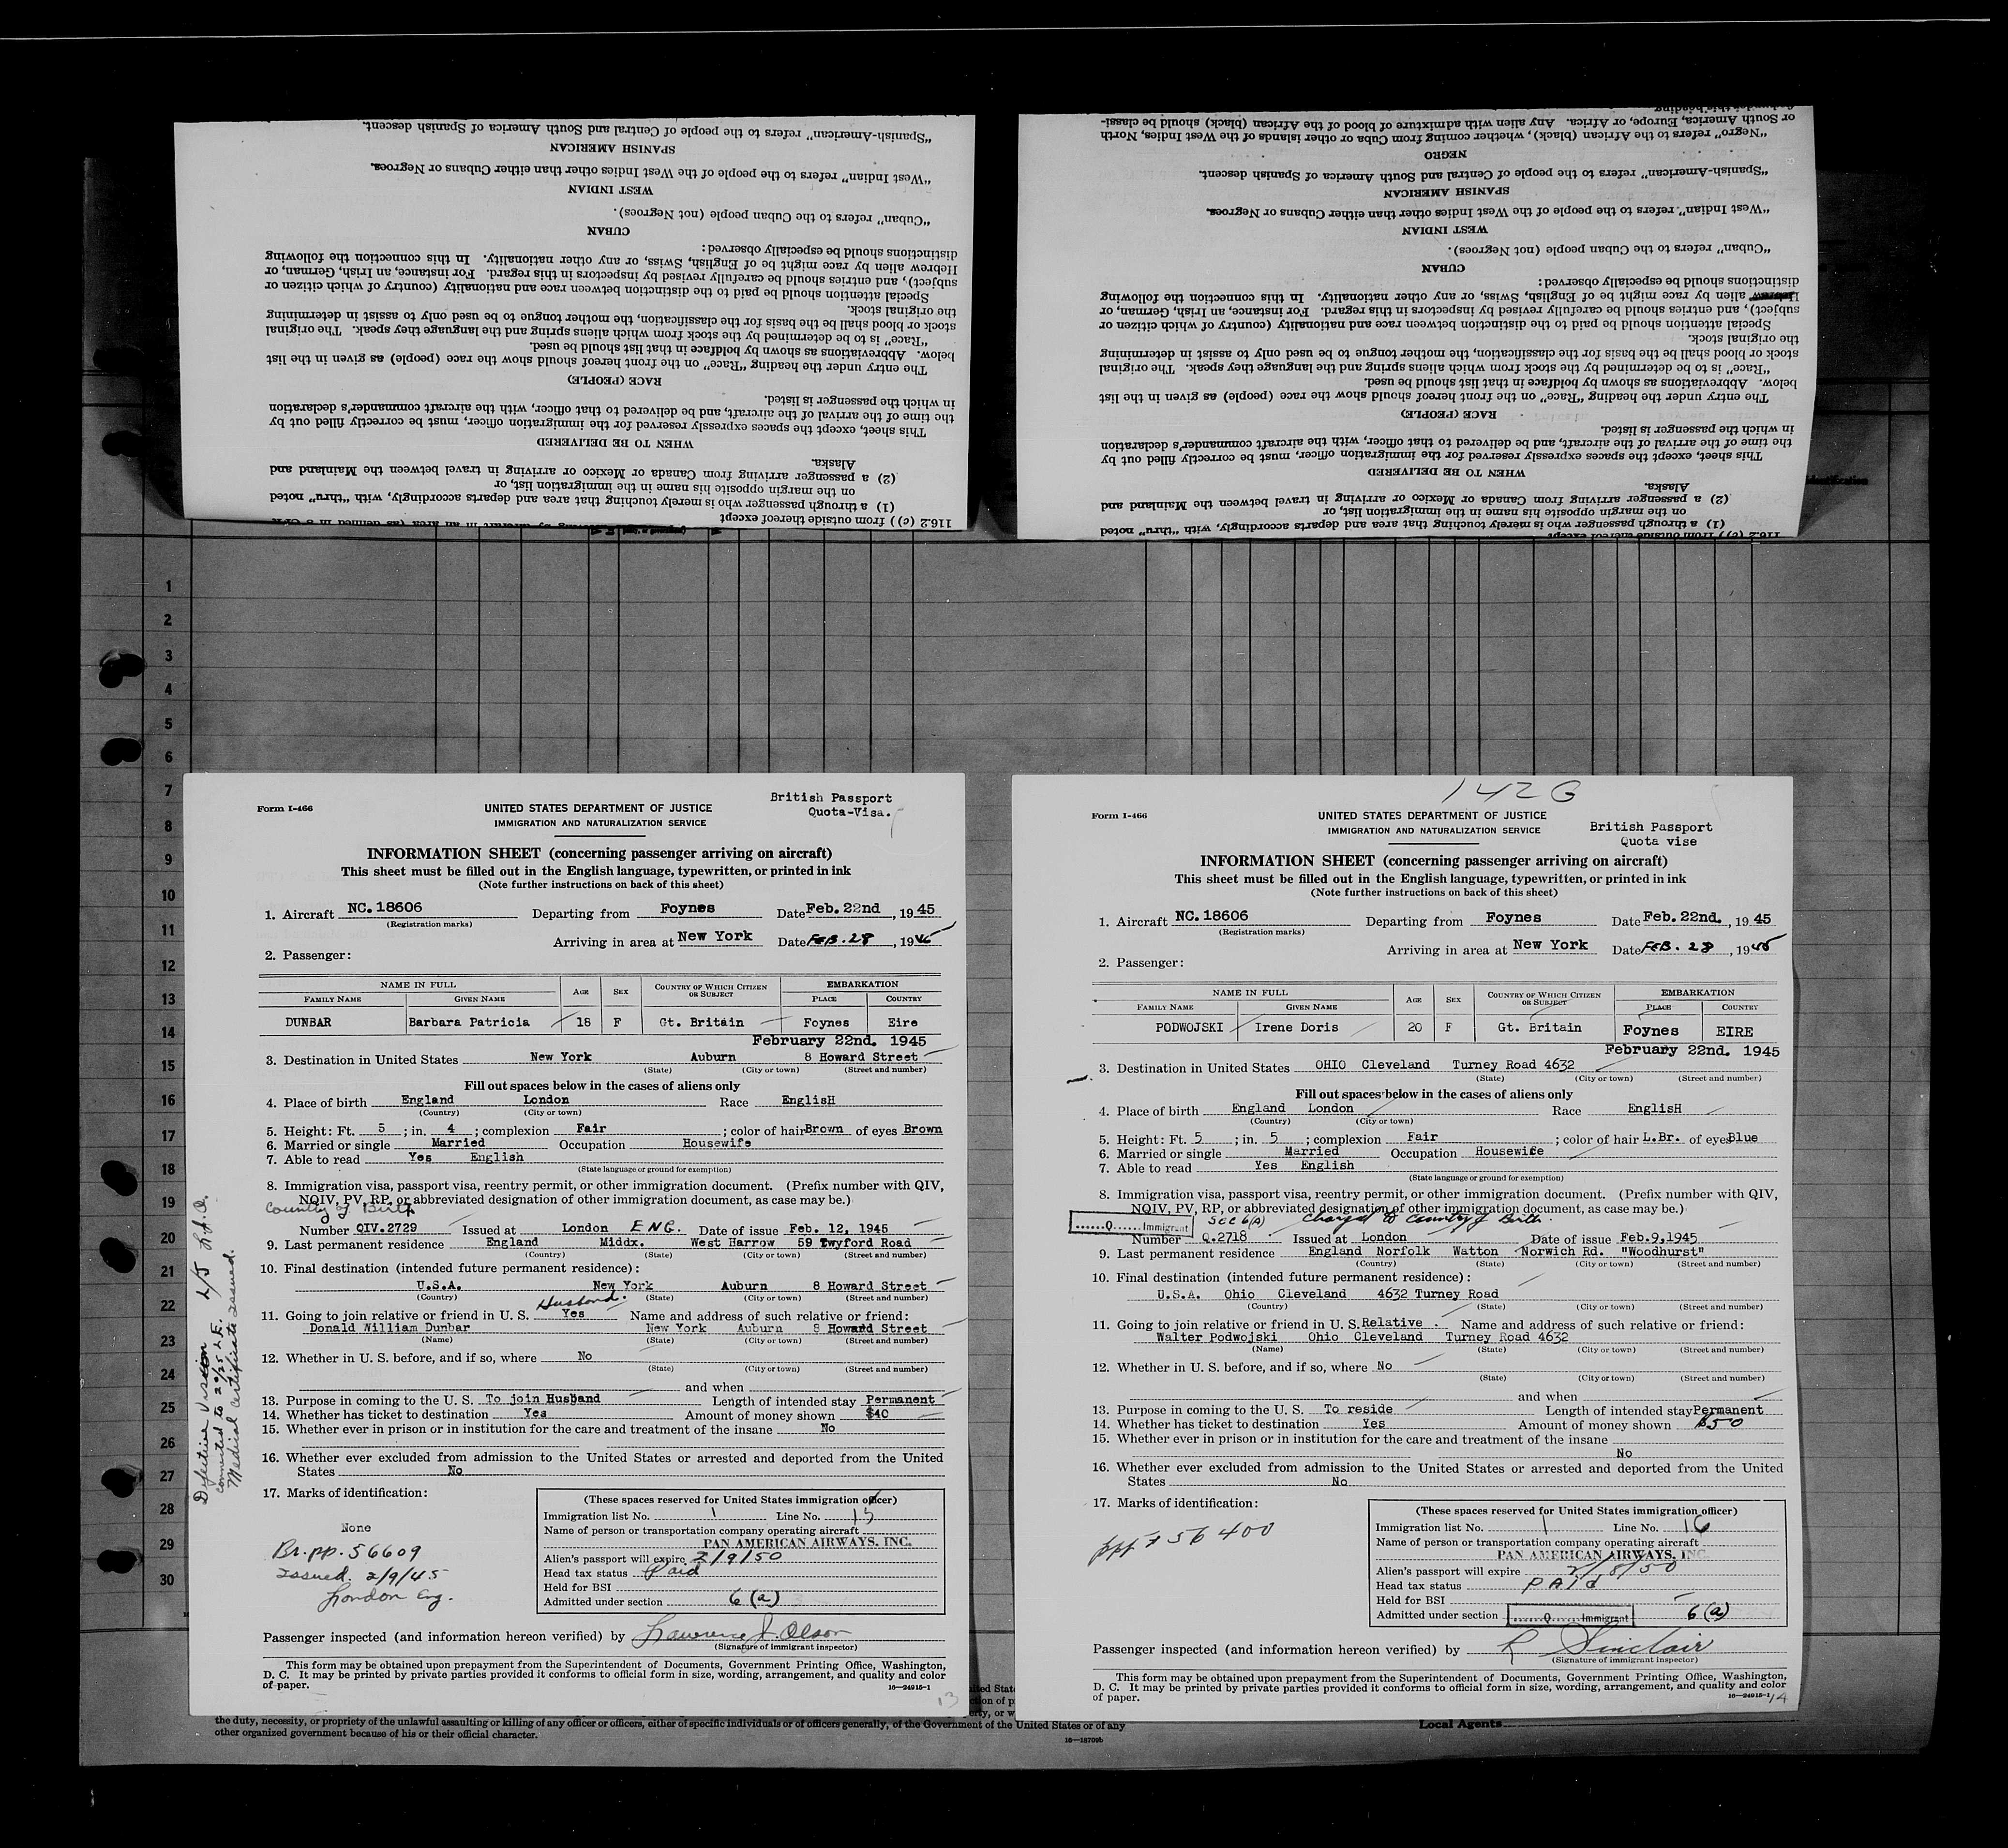 "Spanish-American" refers to the people of Central and South America of Spanish descent.
SPANISH AMERICAN
"West Indian" refers to the people of the West Indies other than either Cubans or Negroes.
WEST INDIAN
"Cuban" refers to the Cuban people (not Negroes).
CUBAN
distinctions should be especially observed:
Hebrew alien by race might be of English, Swiss, or any other nationality. In this connection the following
subject), and entries should be carefully revised by inspectors in this regard. For instance, an Irish, German, or
Special attention should be paid to the distinction between race and nationality (country of which citizen or
the original stock.
stock or blood shall be the basis for the classification, the mother tongue to be used only to assist in determining
"Race" is to be determined by the stock from which aliens spring and the language they speak. The original
below. Abbreviations as shown by boldface in that list should be used.
The entry under the heading "Race" on the front hereof should show the race (people) as given in the list
RACE (PEOPLE)
in which the passenger is listed.
the time of the arrival of the aircraft, and be delivered to that officer, with the aircraft commander's declaration
This sheet, except the spaces expressly reserved for the immigration officer, must be correctly filled out by
WHEN TO BE DELIVERED
Alaska.
(2) a passenger arriving from Canada or Mexico or arriving in travel between the Mainland and
on the margin opposite his name in the immigration list, or
(1) a through passenger who is merely touching that area and departs accordingly, with "thru" noted
116.2 (c)) from outside thereof except
or South America, Europe, or Africa. Any alien with admixture of blood of the African (black) should be classi-
"Negro" refers to the African (black), whether coming from Cuba or other islands of the West Indies, North
NEGRO
"Spanish-American" refers to the people of Central and South America of Spanish descent.
SPANISH AMERICAN
"West Indian" refers to the people of the West Indies other than either Cubans or Negroes.
WEST INDIAN
"Cuban" refers to the Cuban people (not Negroes).
CUBAN
distinctions should be especially observed:
alien by race might be of English, Swiss, or any other nationality. In this connection the following
subject), and entries should be carefully revised by inspectors in this regard. For instance, an Irish, German, or
Special attention should be paid to the distinction between race and nationality (country of which citizen or
the original stock.
stock or blood shall be the basis for the classification, the mother tongue to be used only to assist in determining
"Race" is to be determined by the stock from which aliens spring and the language they speak. The original
below. Abbreviations as shown by boldface in that list should be used.
The entry under the heading "Race" on the front hereof should show the race (people) as given in the list
RACE (PEOPLE)
in which the passenger is listed.
the time of the arrival of the aircraft, and be delivered to that officer, with the aircraft commander's declaration
This sheet, except the spaces expressly reserved for the immigration officer, must be correctly filled out by
WHEN TO BE DELIVERED
Alaska.
(2) a passenger arriving from Canada or Mexico or arriving in travel between the Mainland and
on the margin opposite his name in the immigration list, or
(1) a through passenger who is merely touching that area and departs accordingly, with "thru" noted
116.2 (c)) from outside thereof except
1
2
3
4
5
6
7
8
9
10
11
12
13
14
15
16
17
18
19
20
21
22
23
24
25
26
27
28
29
30
British Passport
Quota-Visa.
Form I-466
UNITED STATES DEPARTMENT OF JUSTICE
IMMIGRATION AND NATURALIZATION SERVICE
INFORMATION SHEET (concerning passenger arriving on aircraft)
This sheet must be filled out in the English language, typewritten, or printed in ink
(Note further instructions on back of this sheet)
1. Aircraft NC.18606 Departing from Foynes Date Feb. 22nd, 1945
(Registration marks)
Arriving in area at New York Date FEB. 28, 1945
2. Passenger:
NAME IN FULL
FAMILY NAME GIVEN NAME AGE SEX COUNTRY OF WHICH CITIZEN OR SUBJECT EMBARKATION PLACE COUNTRY
DUNBAR Barbara Patricia 18 F Gt. Britain Foynes Eire
February 22nd. 1945
3. Destination in United States New York Auburn 8 Howard Street
(State) (City or town) (Street and number)
Fill out spaces below in the cases of aliens only
4. Place of birth England London Race EnglisH
(Country) (City or town)
5. Height: Ft. 5; in. 4; complexion Fair; color of hair Brown of eyes Brown
6. Married or single Married Occupation Housewife
7. Able to read Yes English
(State language or ground for exemption)
8. Immigration visa, passport visa, reentry permit, or other immigration document. (Prefix number with QIV,
NQIV, PV, RP, or abbreviated designation of other immigration document, as case may be.)
Country of Birth
Number QIV.2729 Issued at London ENG. Date of issue Feb. 12, 1945
9. Last permanent residence England Middx. West Harrow 59 Twyford Road
(Country) (State) (City or town) (Street and number)
10. Final destination (intended future permanent residence):
U.S.A. New York Auburn 8 Howard Street
(Country) (State) (City or town) (Street and number)
Husband.
11. Going to join relative or friend in U. S. Yes Name and address of such relative or friend:
Donald William Dunbar New York Auburn 8 Howard Street
(Name) (State) (City or town) (Street and number)
12. Whether in U. S. before, and if so, where No
(State) (City or town) (Street and number)
and when
13. Purpose in coming to the U. S. To join Husband Length of intended stay Permanent
14. Whether has ticket to destination Yes Amount of money shown $40
15. Whether ever in prison or in institution for the care and treatment of the insane No
16. Whether ever excluded from admission to the United States or arrested and deported from the United
States No
17. Marks of identification:
None
Br.pp.56609
Issued. 2/9/45
London Eng.
(These spaces reserved for United States immigration officer)
Immigration list No. 1 Line No. 15
Name of person or transportation company operating aircraft
PAN AMERICAN AIRWAYS, INC.
Alien's passport will expire 2/9/50
Head tax status Paid
Held for BSI
Admitted under section 6 (a)
Passenger inspected (and information hereon verified) by Lawrence J. Olson
(Signature of immigrant inspector)
This form may be obtained upon prepayment from the Superintendent of Documents, Government Printing Office, Washington,
D. C. It may be printed by private parties provided it conforms to official form in size, wording, arrangement, and quality and color
of paper.
16—24915-1
13
Defective Vision
corrected to 20/25 L.E.
Medical certificate issued.
142G
British Passport
Quota vise
Form I-466
UNITED STATES DEPARTMENT OF JUSTICE
IMMIGRATION AND NATURALIZATION SERVICE
INFORMATION SHEET (concerning passenger arriving on aircraft)
This sheet must be filled out in the English language, typewritten, or printed in ink
(Note further instructions on back of this sheet)
1. Aircraft NC.18606 Departing from Foynes Date Feb. 22nd., 1945
(Registration marks)
Arriving in area at New York Date FEB. 28, 1945
2. Passenger:
NAME IN FULL
FAMILY NAME GIVEN NAME AGE SEX COUNTRY OF WHICH CITIZEN OR SUBJECT EMBARKATION PLACE COUNTRY
PODWOJSKI Irene Doris 20 F Gt. Britain Foynes EIRE
February 22nd. 1945
3. Destination in United States OHIO Cleveland Turney Road 4632
(State) (City or town) (Street and number)
Fill out spaces below in the cases of aliens only
4. Place of birth England London Race EnglisH
(Country) (City or town)
5. Height: Ft. 5; in. 5; complexion Fair; color of hair L.Br. of eyes Blue
6. Married or single Married Occupation Housewife
7. Able to read Yes English
(State language or ground for exemption)
8. Immigration visa, passport visa, reentry permit, or other immigration document. (Prefix number with QIV,
NQIV, PV, RP, or abbreviated designation of other immigration document, as case may be.)
Q Immigrant SEC 6(A) Charged to Country of Birth.
Number Q.2718 Issued at London Date of issue Feb.9,1945
9. Last permanent residence England Norfolk Watton Norwich Rd. "Woodhurst"
(Country) (State) (City or town) (Street and number)
10. Final destination (intended future permanent residence):
U.S.A. Ohio Cleveland 4632 Turney Road
(Country) (State) (City or town) (Street and number)
11. Going to join relative or friend in U. S. Relative. Name and address of such relative or friend:
Walter Podwojski Ohio Cleveland Turney Road 4632
(Name) (State) (City or town) (Street and number)
12. Whether in U. S. before, and if so, where No
(State) (City or town) (Street and number)
and when
13. Purpose in coming to the U. S. To reside Length of intended stay Permanent
14. Whether has ticket to destination Yes Amount of money shown $50
15. Whether ever in prison or in institution for the care and treatment of the insane
No
16. Whether ever excluded from admission to the United States or arrested and deported from the United
States No
17. Marks of identification:
ppt # 56400
(These spaces reserved for United States immigration officer)
Immigration list No. 1 Line No. 16
Name of person or transportation company operating aircraft
PAN AMERICAN AIRWAYS, INC.
Alien's passport will expire 2/8/50
Head tax status PAID
Held for BSI
Admitted under section Q Immigrant 6(a)
Passenger inspected (and information hereon verified) by R Sinclair
(Signature of immigrant inspector)
This form may be obtained upon prepayment from the Superintendent of Documents, Government Printing Office, Washington,
D. C. It may be printed by private parties provided it conforms to official form in size, wording, arrangement, and quality and color
of paper.
16—24915-1
14
the duty, necessity, or propriety of the unlawful assaulting or killing of any officer or officers, either of specific individuals or of officers generally, of the Government of the United States or of any
other organized government because of his or their official character.
16—18709b
Local Agents